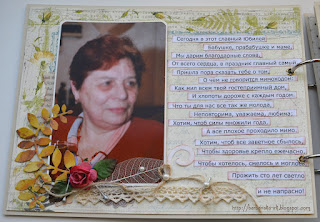 Сегодня в этот главный Юбилей
Бабушке, прабабушке и маме,
Мы дарим благодарные слова,
От всего сердца, в праздник главный самый
Пришла пора сказать тебе о том,
О чем не говорится мимоходом:
Как мил всем твой гостеприимный дом,
И хлопоты дороже с каждым годом,
Что ты для нас все так же молода,
Неповторима, уважаема, любима,
Хотим, чтоб силы множили года,
А все плохое проходило мимо.
Хотим, чтоб все заветное сбылось,
Чтобы здоровье крепко ежечасно,
Чтобы хотелось, смелось и моглось
Прожить сто лет светло
и не напрасно!